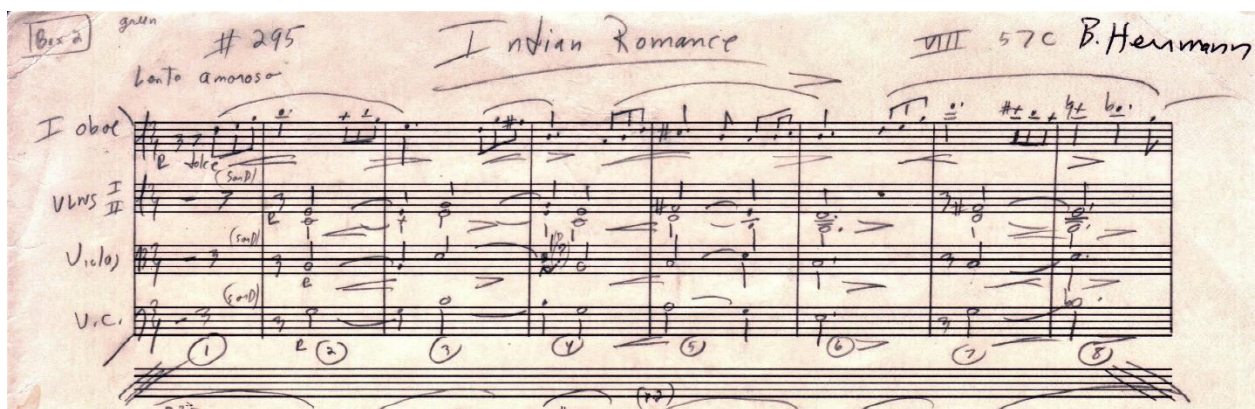 Box 2 green # 295 Indian Romance VIII 57C B. Herrmann
Lento amoroso
I oboe
P dolce
(sord)
VLNS I
II
P
(sord)
Violas
P
(sord)
V.C.
P
1 2 3 4 5 6 7 8